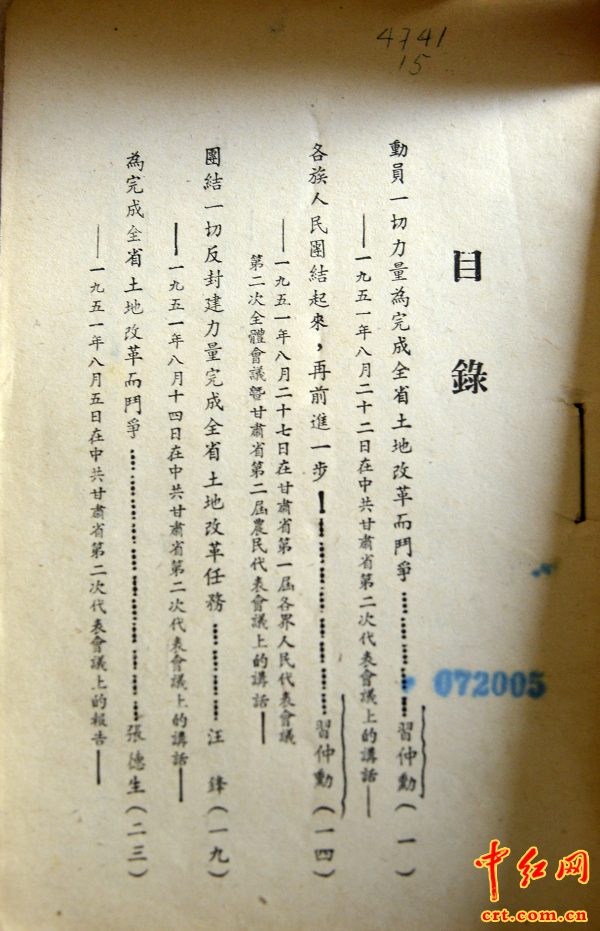 4741
15
目錄
動員一切力量為完成全省土地改革而鬥爭……習仲勳(一)
——一九五一年八月二十二日在中共甘肅省第二次代表會議上的講話——
各族人民團結起來，再前進一步！……習仲勳(一四)
——一九五一年八月二十七日在甘肅省第一屆各界人民代表會議
第二次全體會議暨甘肅省第二屆農民代表會議上的講話——
團結一切反封建力量完成全省土地改革任務……汪鋒(一九)
——一九五一年八月十四日在中共甘肅省第二次代表會議上的講話——
為完成全省土地改革而鬥爭……張德生(二三)
——一九五一年八月五日在中共甘肅省第二次代表會議上的報告——
072005
中红网
crt.com.cn